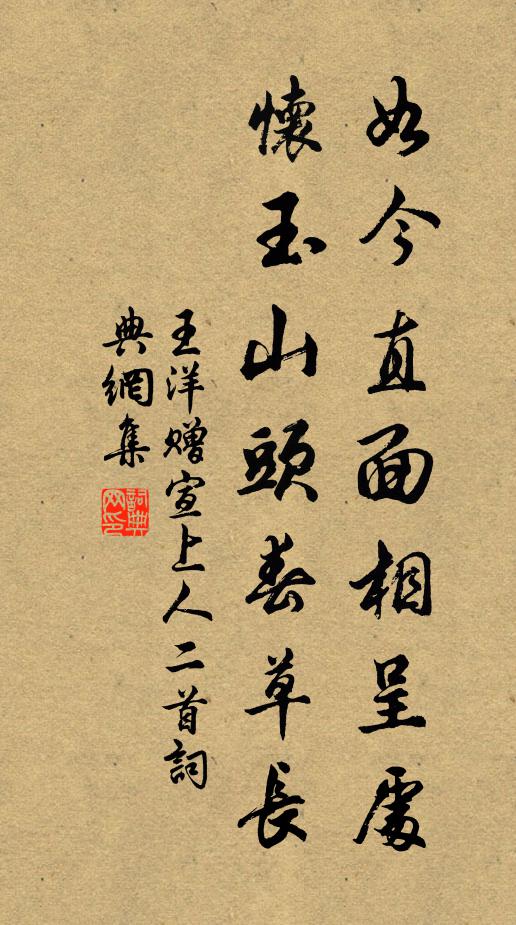 如今直面相呈處
懷玉山頭春草長
王洋贈宣上人二首詞
典網集
詞典网印